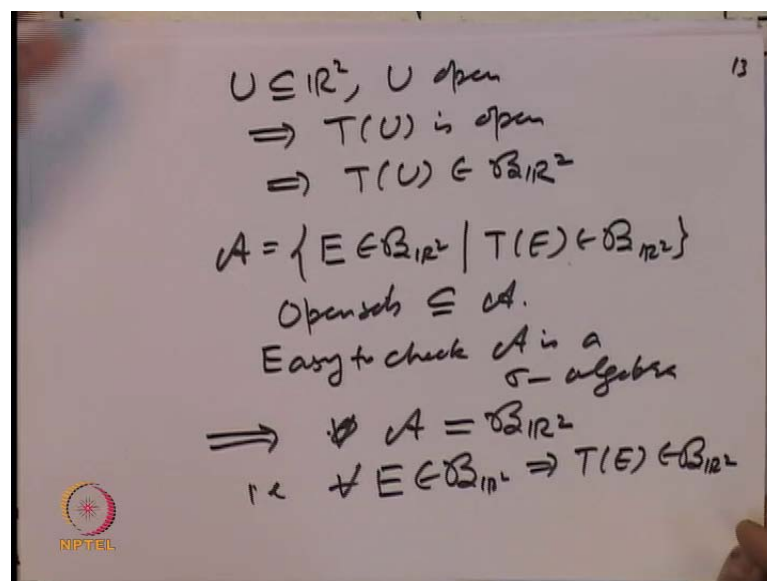 13
U ⊆ ℝ², U open
⟹ T(U) is open
⟹ T(U) ∈ 𝓑ℝ²
𝒜 = { E ∈ 𝓑ℝ² | T(E) ∈ 𝓑ℝ² }
Open sets ⊆ 𝒜.
Easy to check 𝒜 is a
σ– algebra
⟹ 𝒜 = 𝓑ℝ²
i.e. ∀ E ∈ 𝓑ℝ² ⇒ T(E) ∈ 𝓑ℝ²
NPTEL